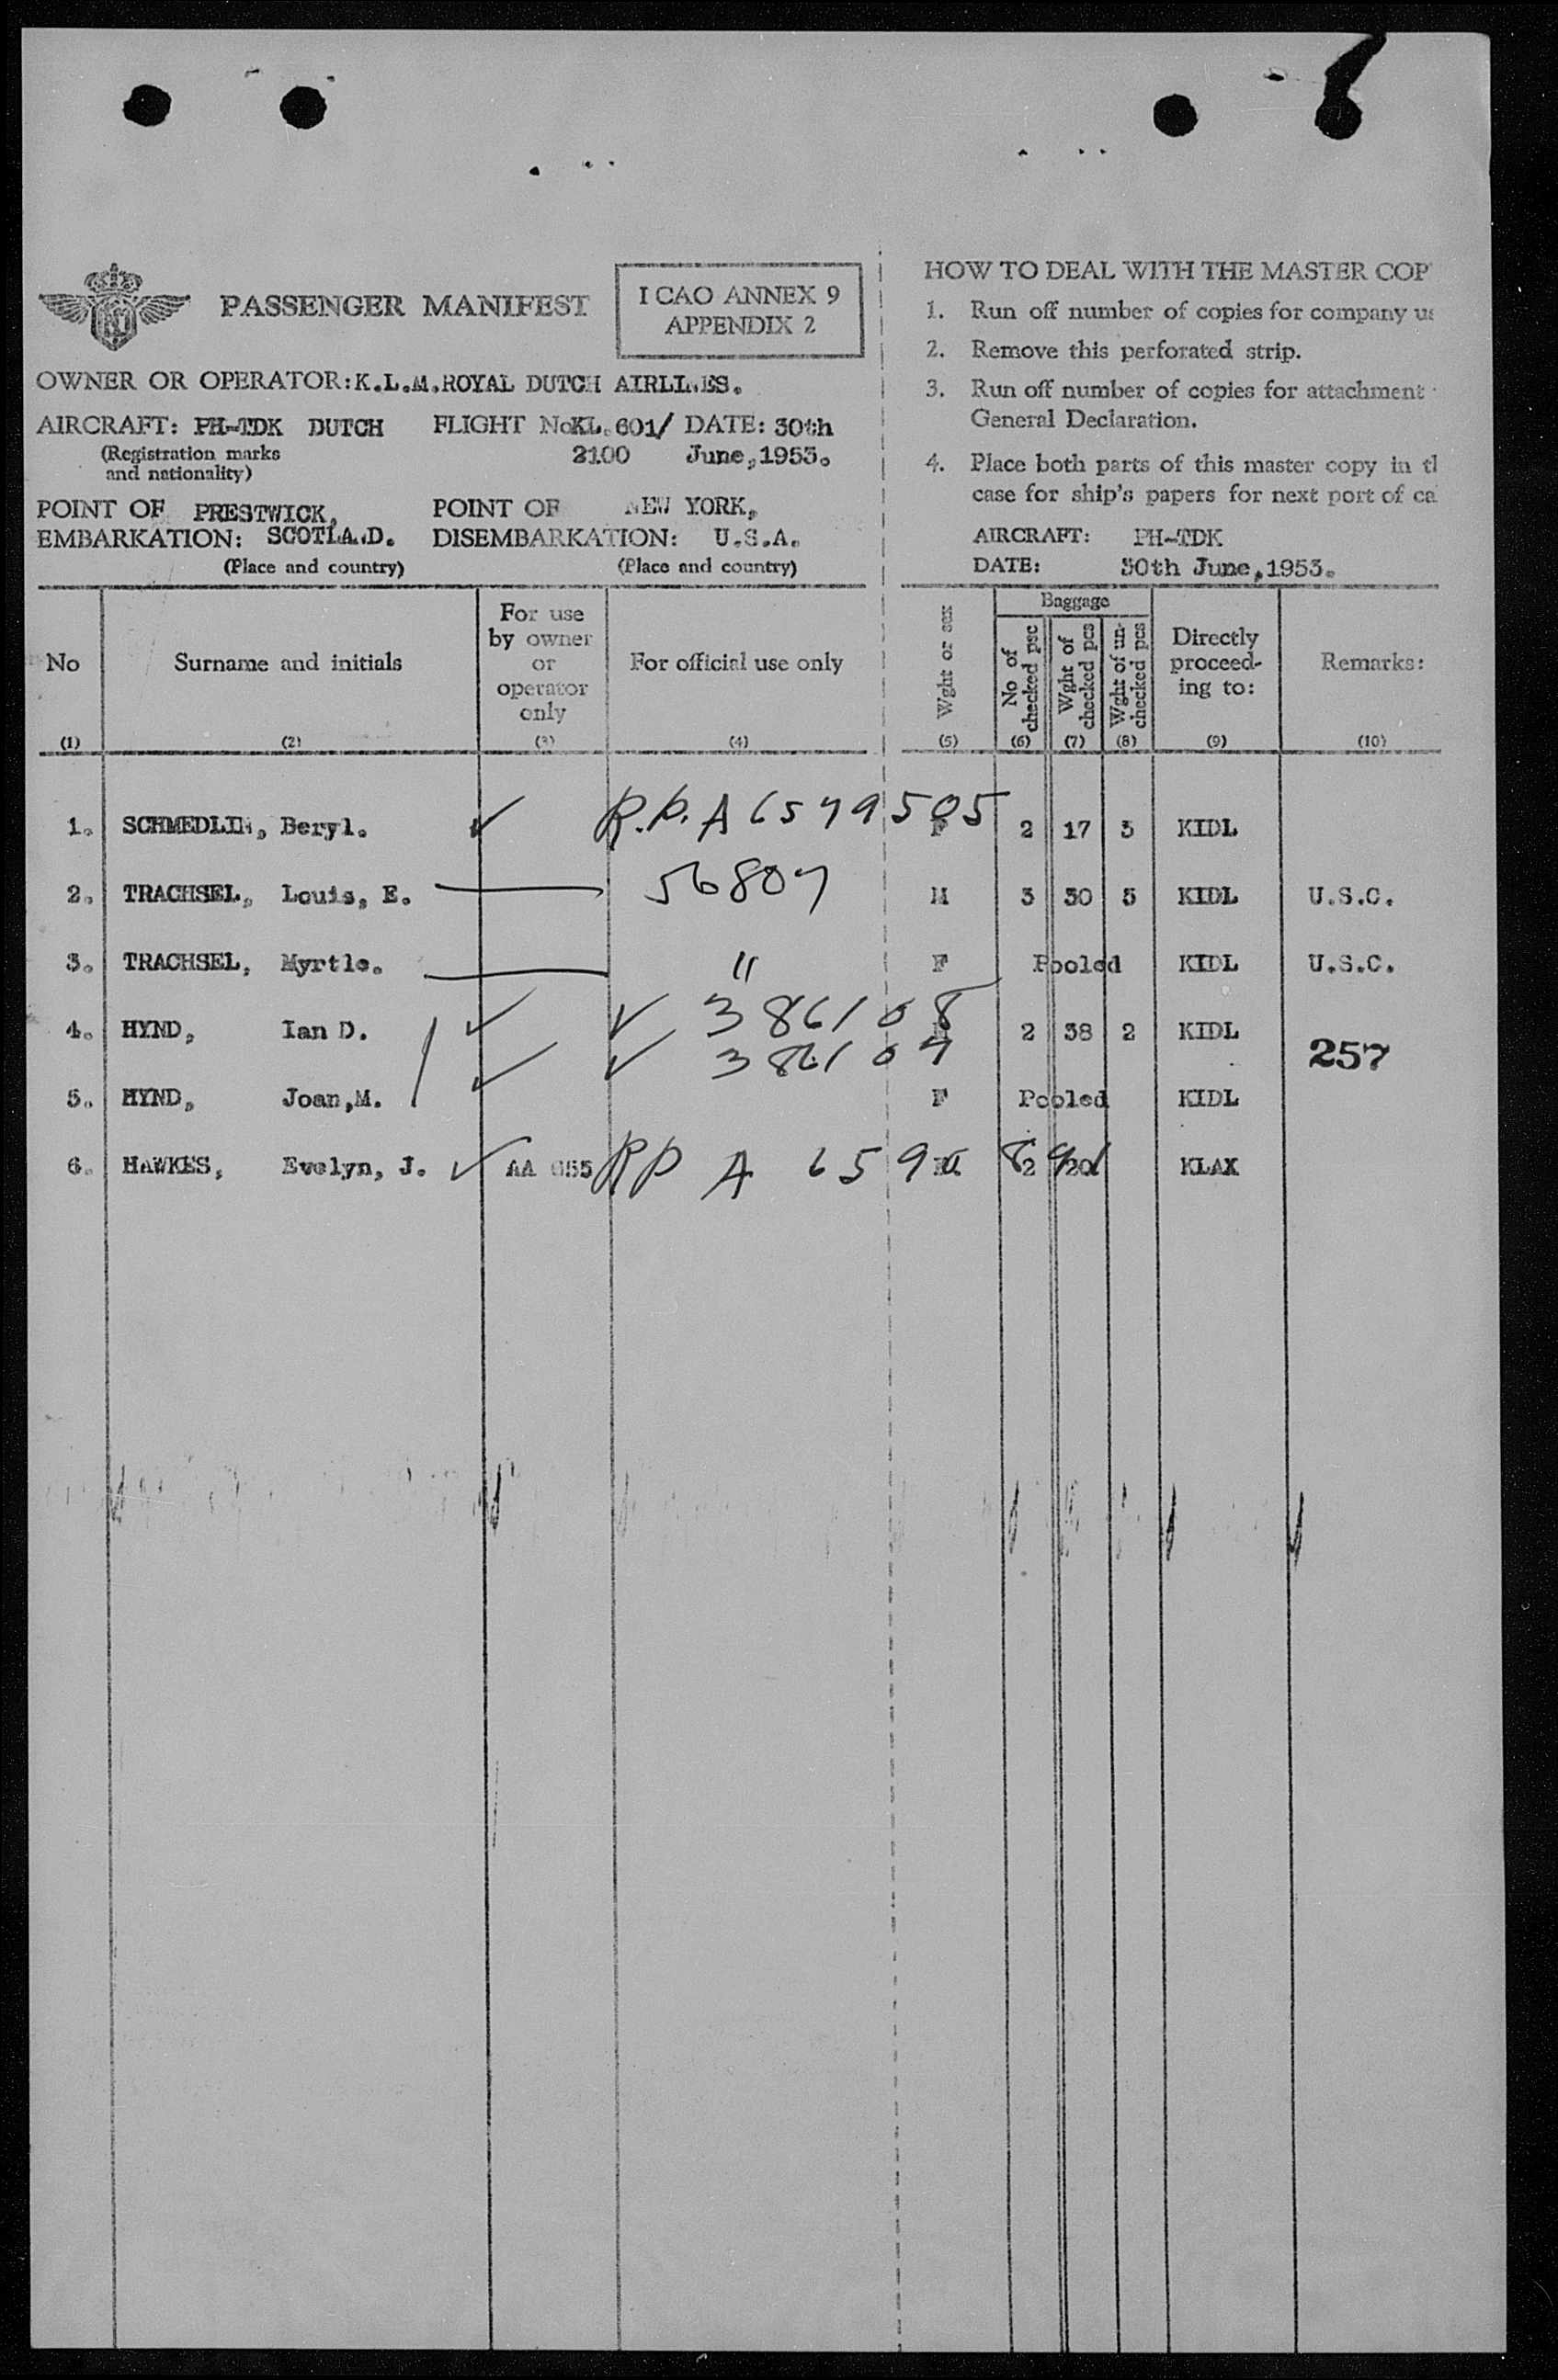 PASSENGER MANIFEST
ICAO ANNEX 9
APPENDIX 2
OWNER OR OPERATOR: K.L.M. ROYAL DUTCH AIRLINES.
AIRCRAFT: PH-TDK DUTCH FLIGHT No KL. 601/ DATE: 30th
(Registration marks and nationality) 2100 June, 1953.
POINT OF EMBARKATION: PRESTWICK, SCOTLAND. POINT OF DISEMBARKATION: NEW YORK, U.S.A.
(Place and country) (Place and country)
HOW TO DEAL WITH THE MASTER COP
1. Run off number of copies for company us
2. Remove this perforated strip.
3. Run off number of copies for attachment
General Declaration.
4. Place both parts of this master copy in th
case for ship's papers for next port of ca
AIRCRAFT: PH-TDK
DATE: 30th June, 1953.
No Surname and initials For use by owner or operator only For official use only Wght or sex Baggage No of checked psc Wght of checked pcs Wght of un-checked pcs Directly proceed-ing to: Remarks:
(1) (2) (3) (4) (5) (6) (7) (8) (9) (10)
1. SCHMEDLIN, Beryl. ✓ R.P. A6579505 F 2 17 3 KIDL
2. TRACHSEL, Louis, E. 56807 M 3 30 5 KIDL U.S.C.
3. TRACHSEL, Myrtle. " F Pooled KIDL U.S.C.
4. HYND, Ian D. ✓ ✓ 386108 M 2 38 2 KIDL
✓ ✓ 386107 257
5. HYND, Joan, M. F Pooled KIDL
6. HAWKES, Evelyn, J. ✓ AA 655 RP A 6590 891 2 20 KLAX